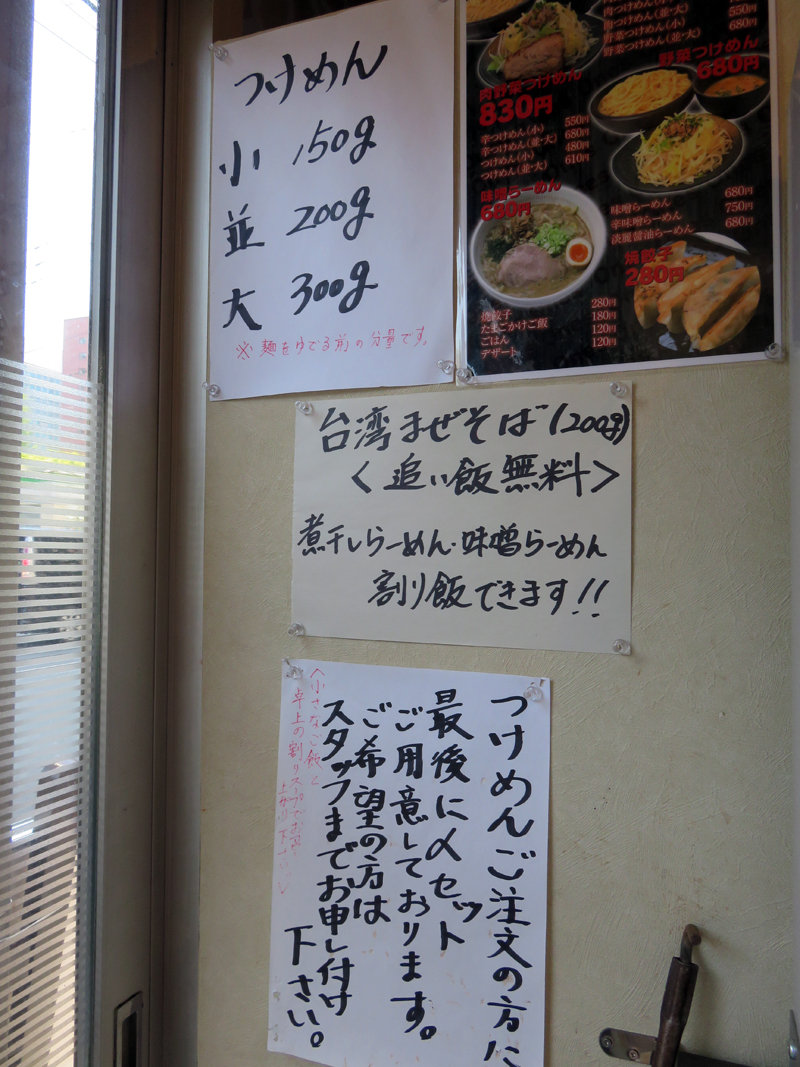 つけめん
小 150g
並 200g
大 300g
※麺をゆでる前の分量です。
肉つけめん(並・大)
野菜つけめん(小)
野菜つけめん(並・大)
550円
680円
肉野菜つけめん
830円
野菜つけめん
680円
辛つけめん(小) 550円
辛つけめん(並・大) 680円
つけめん(小) 480円
つけめん(並・大) 610円
味噌らーめん
680円
味噌らーめん 680円
辛味噌らーめん 750円
淡麗醤油らーめん 680円
焼餃子
280円
焼餃子 280円
たまごかけご飯 180円
ごはん 120円
デザート 120円
台湾まぜそば(200g)
<追い飯無料>
煮干しらーめん・味噌らーめん
割り飯できます!!
つけめんご注文の方に
最後に〆セット
ご用意しております。
ご希望の方は
スタッフまでお申し付け
下さい。
小さなご飯と
卓上の割りスープでお召し
上がり下さい